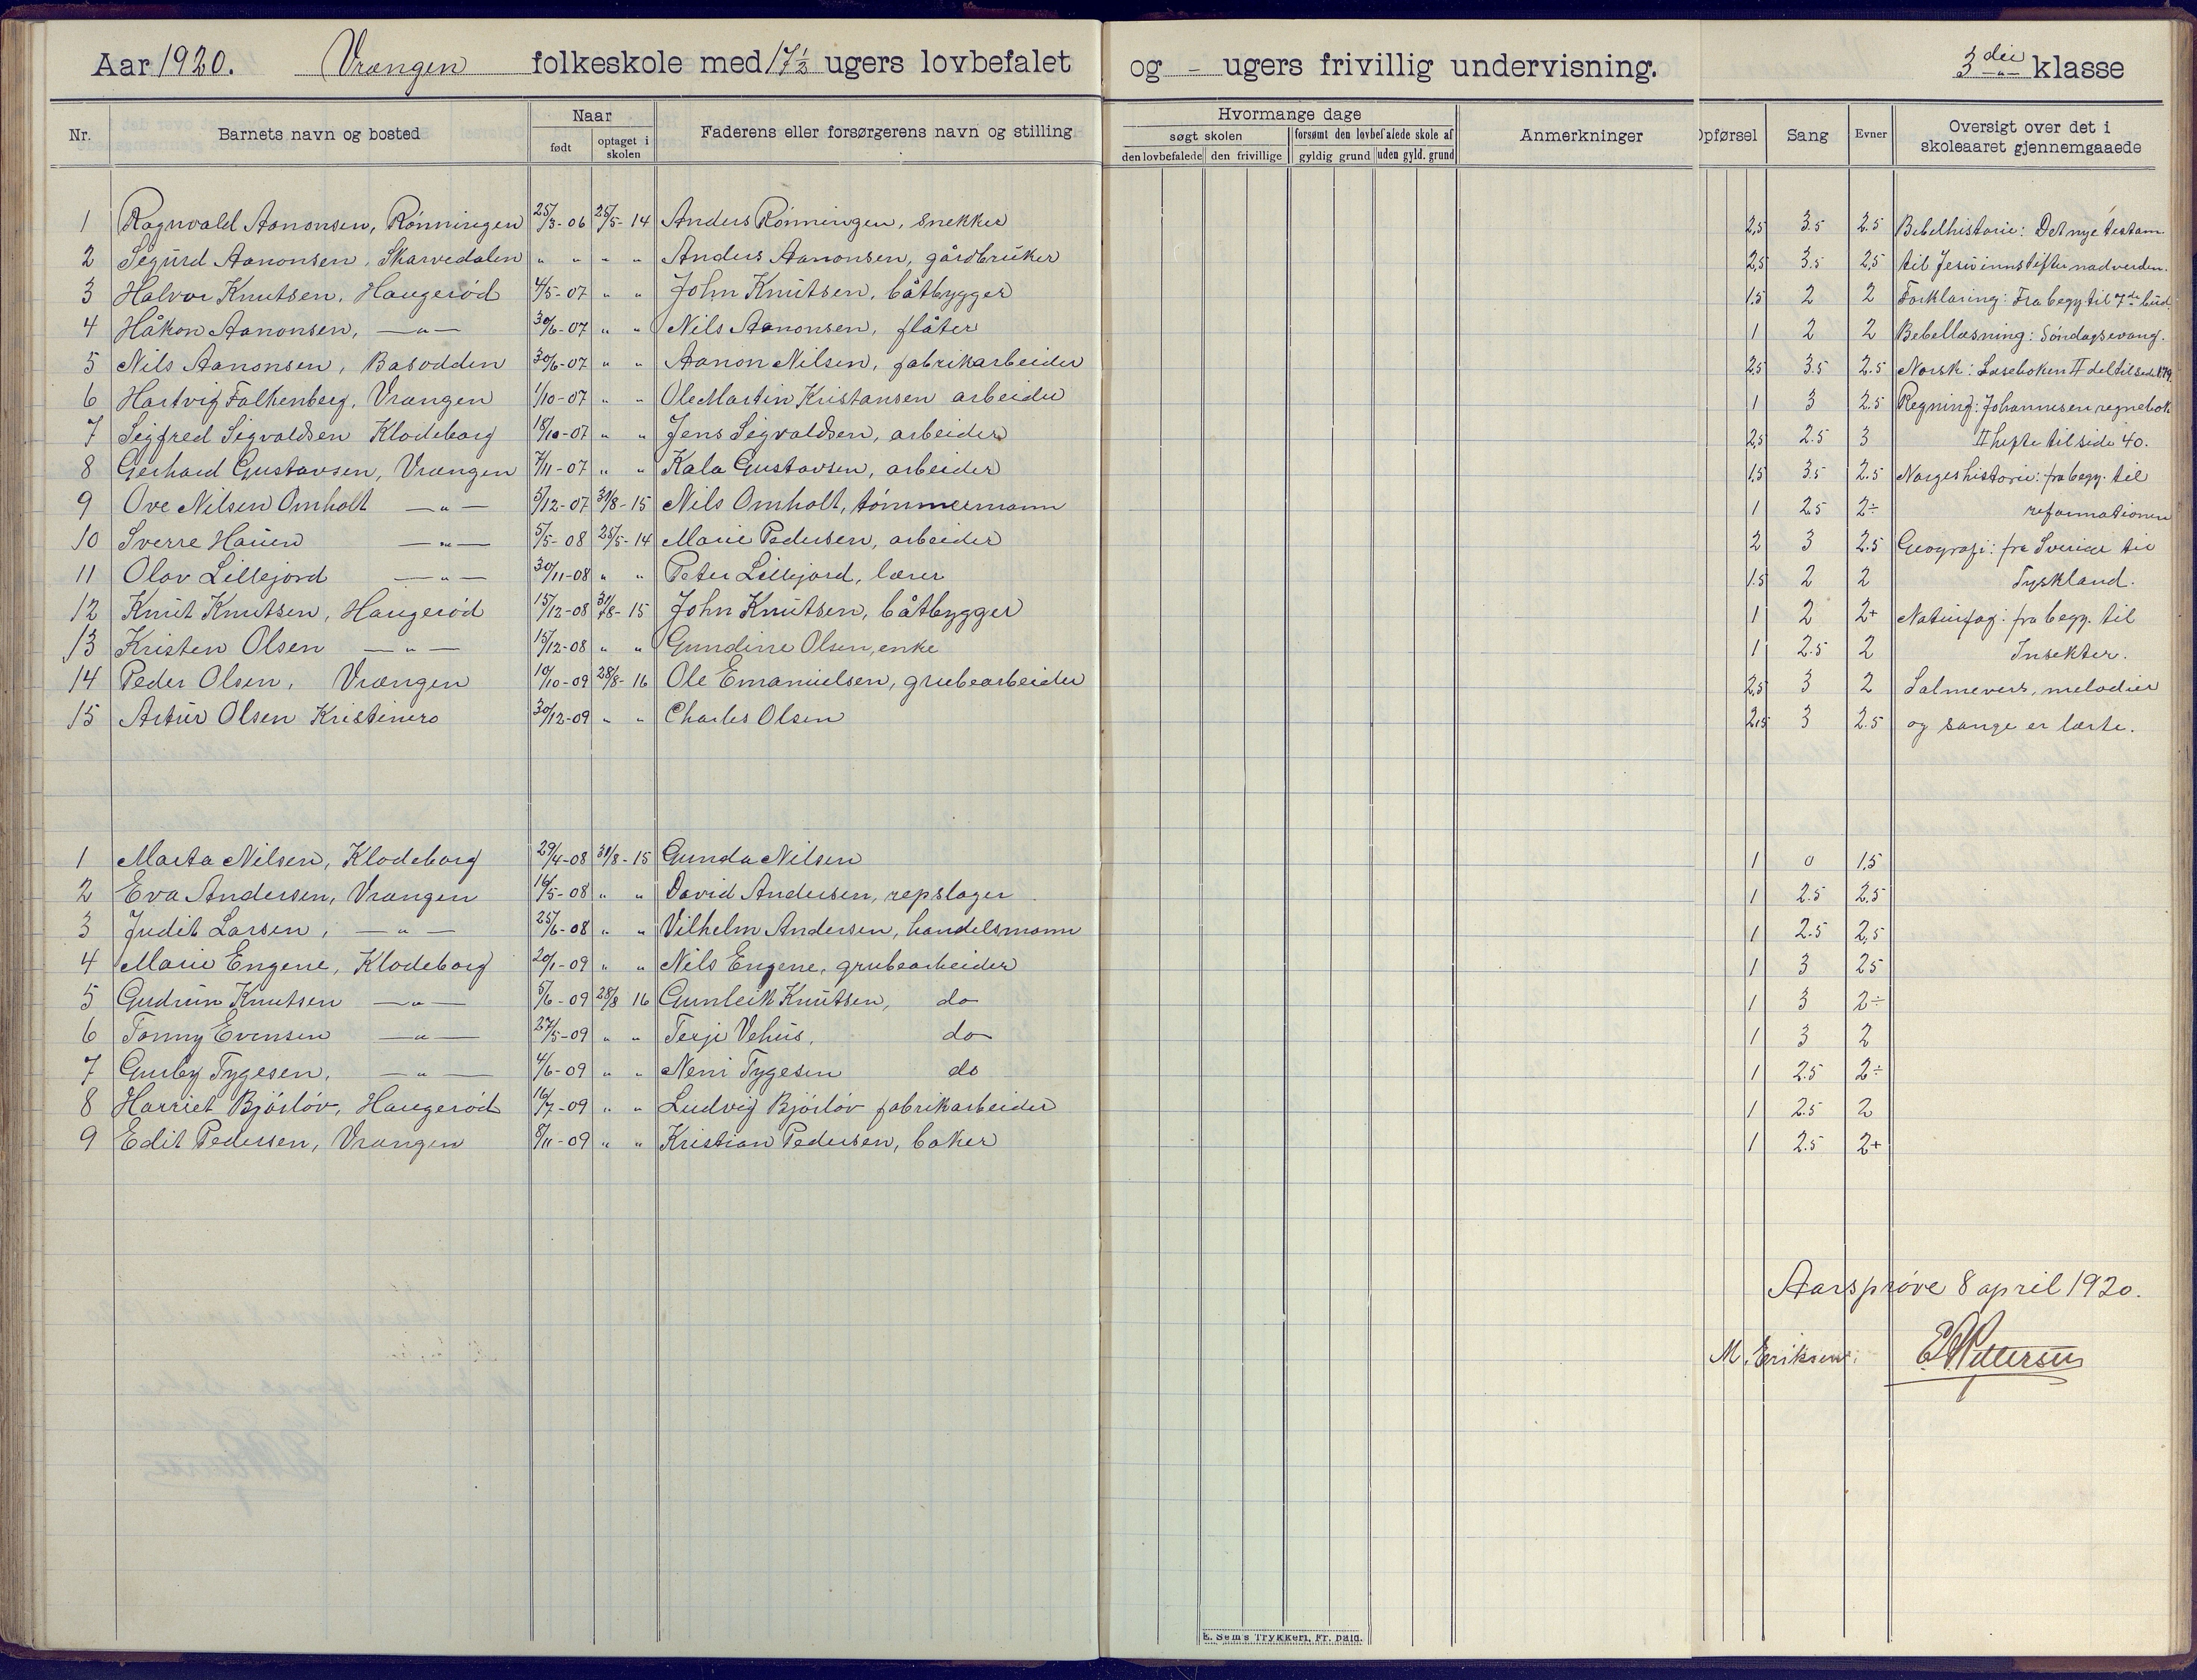 Aar 1920. Vrængen folkeskole med 17½ ugers lovbefalet og - ugers frivillig undervisning. 3die klasse
Nr. Barnets navn og bosted Naar født optaget i skolen Faderens eller forsørgerens navn og stilling Hvormange dage søgt skolen den lovbefalede den frivillige forsømt den lovbefalede skole af gyldig grund uden gyld. grund Anmerkninger Opførsel Sang Evner Oversigt over det i skoleaaret gjennemgaaede
1 Ragnvald Aanonsen, Rønningen 25/3-06 25/5-14 Anders Rønningen, snekker 2,5 3.5 2.5 Bebelhistorie: Det nye testam.
2 Sigurd Aanonsen, Skarvedalen " " " " Anders Aanonsen, gårdbruker 2,5 3.5 2,5 til Jesu innstifter nadverden.
3 Halvor Knutsen, Haugerød 4/5-07 " " John Knutsen, båtbygger 1.5 2 2 Forklaring: Fra begy til 7de bud.
4 Håkon Aanonsen, —"— 30/6-07 " " Nils Aanonsen, flåter 1 2 2 Bebellæsning: Søndagsevang.
5 Nils Aanonsen, Basodden 30/6-07 " " Aanon Nilsen, fabrikarbeider 2.5 3.5 2.5 Norsk: Læseboken II del til side 179.
6 Hartvig Falkenberg, Vrængen 1/10-07 " " Ole Martin Kristansen arbeider 1 3 2.5 Regning: Johannesen regnebok
7 Sigfred Sigvaldsen Klodeborg 18/10-07 " " Jens Sigvaldsen, arbeider 2,5 2.5 3 II hefte til side 40.
8 Gerhard Gustavsen, Vrængen 7/11-07 " " Kala Gustavsen, arbeider 1,5 3.5 2.5 Norgeshistorie: fra begy. til
9 Ove Nilsen Omholt —"— 5/12-07 31/8-15 Nils Omholt, tømmermann 1 2.5 2÷ reformationen
10 Sverre Hauen —"— 5/5-08 25/5-14 Marie Pedersen, arbeider 2 3 2.5 Geografi: fra Sverige til
11 Olav Lillejord —"— 30/11-08 " " Peter Lillejord, lærer 1.5 2 2 Tyskland.
12 Knut Knutsen, Haugerød 15/12-08 31/8-15 John Knutsen, båtbygger 1 2 2+ Naturfag: fra begy. til
13 Kristen Olsen —"— 15/12-08 " " Gundine Olsen, enke 1 2.5 2 Insekter.
14 Peder Olsen, Vrængen 10/10-09 28/8-16 Ole Emanuelsen, grubearbeider 2,5 3 2 Salmevers, melodier
15 Artur Olsen Kristinero 30/12-09 " " Charles Olsen 2,5 3 2.5 og sange er lærte.
1 Marta Nilsen, Klodeborg 29/4-08 31/8-15 Gunda Nilsen 1 0 1,5
2 Eva Andersen, Vrængen 16/5-08 " " David Andersen, repslager 1 2.5 2,5
3 Judit Larsen, —"— 25/6-08 " " Vilhelm Andersen, handelsmann 1 2.5 2,5
4 Marie Engene, Klodeborg 20/1-09 " " Nils Engene, grubearbeider 1 3 25
5 Gudrun Knutsen —"— 5/6-09 28/8 16 Gunleik Knutsen, do 1 3 2÷
6 Tonny Evensen —"— 27/5-09 " " Terje Vehus, do 1 3 2
7 Gunby Tygesen, —"— 4/6-09 " " Neni Tygesen do 1 2.5 2÷
8 Harriet Bjórløv, Haugerød 16/7-09 " " Ludvig Bjórløv fabrikarbeider 1 2.5 2
9 Edit Pedersen, Vrængen 8/11-09 " " Kristian Pedersen, baker 1 2.5 2+
Aarsprøve 8 april 1920.
M. Eriksen. Pettersen
E. Sem's Trykkeri, Fr. hald.